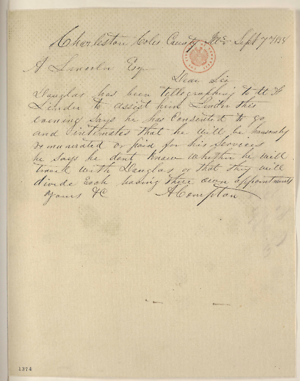 Charleston Coles County Ills Sept 7th 1858
A Lincoln Esq
Dear Sir
Douglas has been telegraphing to U F
Linder to assist him Linder this
evening says he has consented to go
and intimates that he will be
remunerated or paid for his services
he says he dont know whether he will
travel with Douglas or that they will
divide each having their own appointments
yours &C A Compton